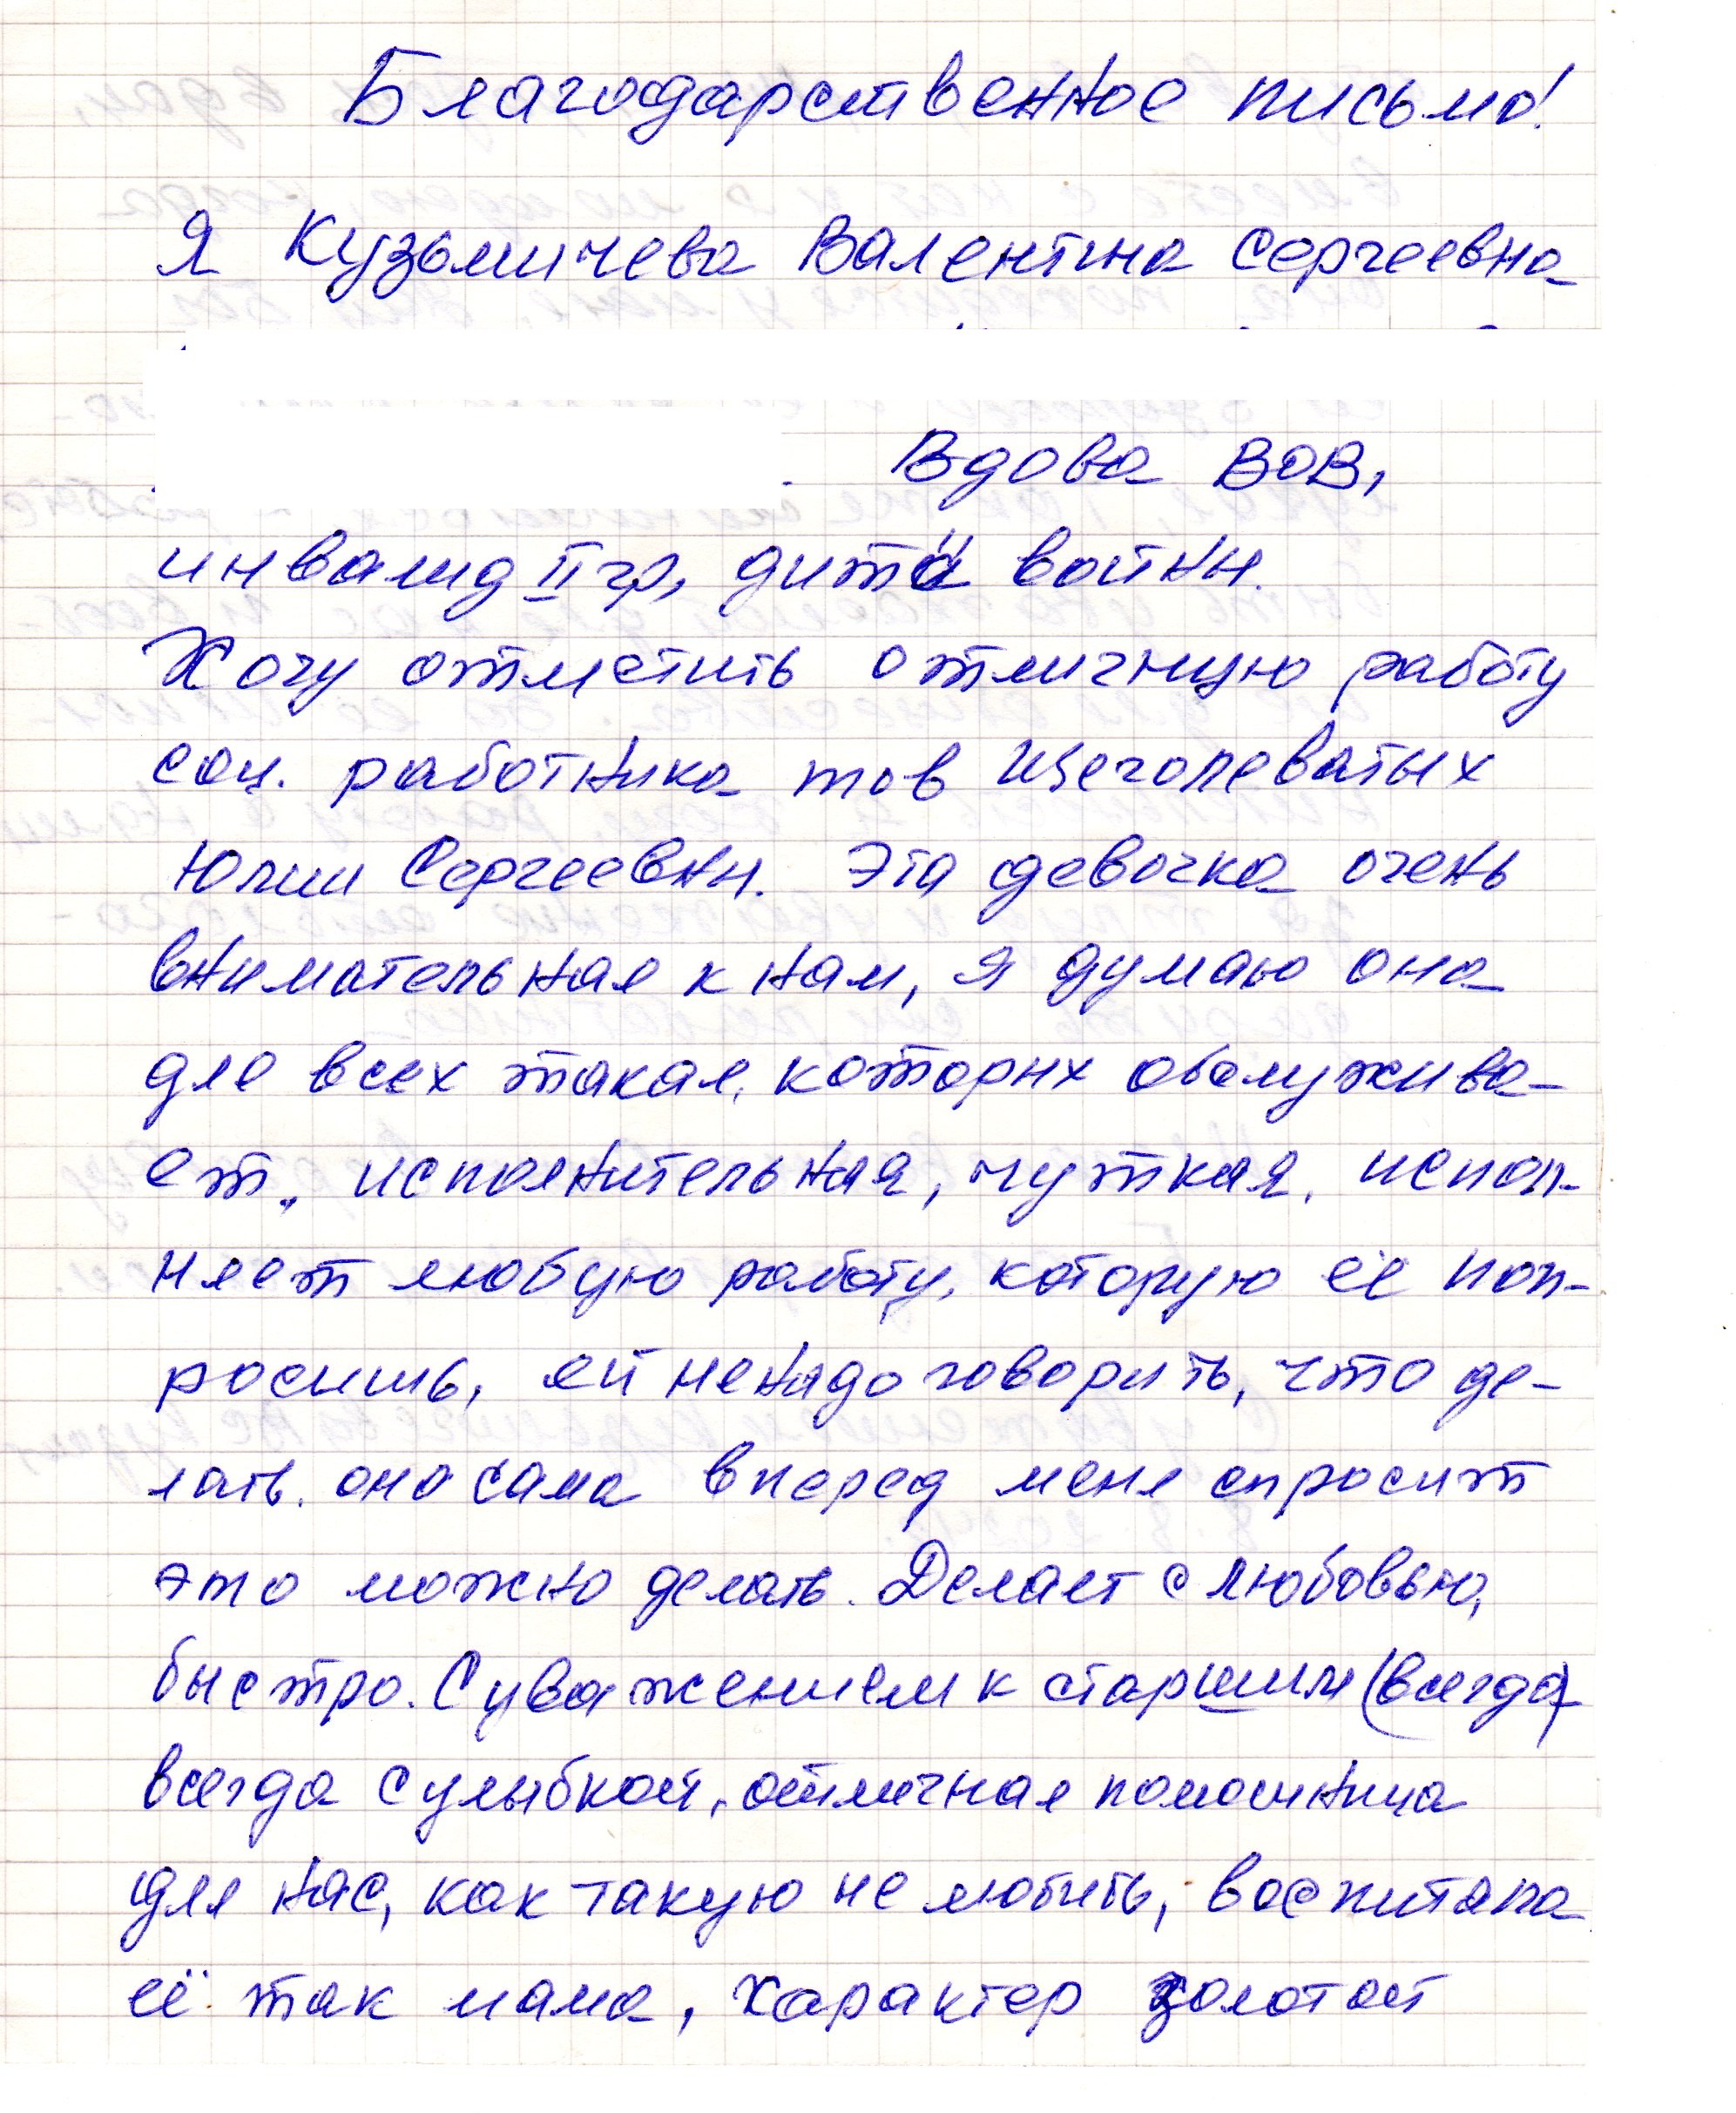 Благодарственное письмо!
Я Кузьмичева Валентина Сергеевна
Вдова ВОВ,
инвалид II гр, дитя войны.
Хочу отметить отличную работу
соц. работника тов Щеголеватых
Юлии Сергеевны. Эта девочка очень
внимательная к нам, я думаю она
для всех такая, которых обслужива-
ет. исполнительная, чуткая, испол-
няет любую работу, которую её поп-
росишь, ей ненадо говорить, что де-
лать. она сама вперед меня спросит
это можно делать. Делает с любовью,
быстро. С уважением к старшим (всегда)
всегда с улыбкой, отличная помощница
для нас, как такую не любить, воспитала
её так мама, характер золотой